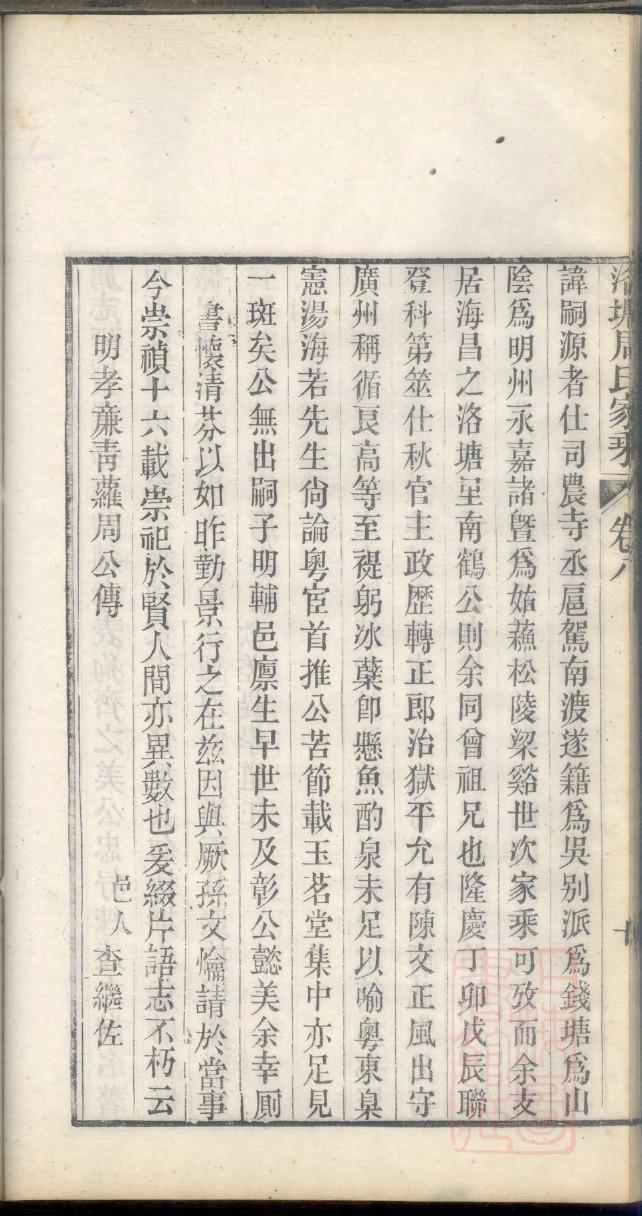 洛塘周氏家乘 卷八
諱嗣源者仕司農寺丞扈駕南渡遂籍爲吳別派爲錢塘爲山
陰爲明州永嘉諸曁爲姑蘓松陵梁谿世次家乘可攷而余支
居海昌之洛塘里南鶴公則余同曾祖兄也隆慶丁卯戊辰聯
登科第筮仕秋官主政歴轉正郎治獄平允有陳文正風出守
廣州稱循良高等至禔躬冰蘖卽懸魚酌泉未足以喻粤東臬
憲湯海若先生尙論粤宦首推公苦節載玉茗堂集中亦足見
一斑矣公無出嗣子明輔邑廪生早世未及彰公懿美余幸厠
書懷清芬以如昨勤景行之在兹因與厥孫文爚請於當事
今崇禎十六載崇祀於賢人間亦異數也爰綴片語志不朽云
明孝廉青蘿周公傳
邑人查繼佐